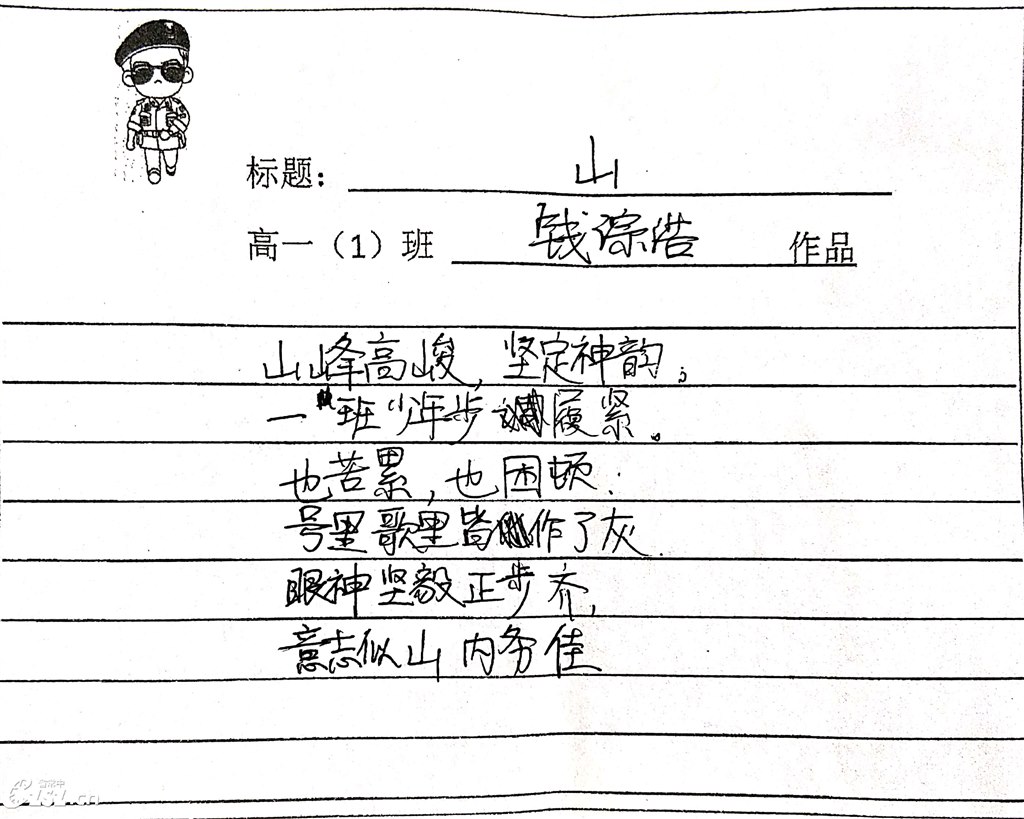 标题： 山
高一（1）班 钱淙浩 作品
山峰高峻，坚定神韵；
一班少年步履紧。
也苦累，也困顿.
号里歌里皆作了灰.
眼神坚毅正步齐,
意志似山内务佳